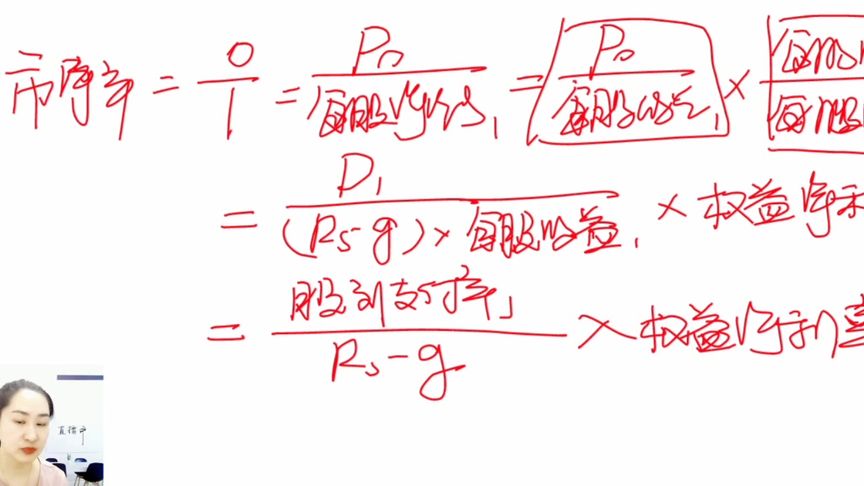 市净率 = 0/1 = P₀/每股净资产₁ = P₀/每股收益₁ × 每股/每股
= D₁/((Rs-g)×每股收益₁) × 权益净利
= 股利支付率₁/(Rs-g) × 权益净利
直播中